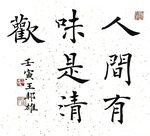 人間有
味是清
歡
壬寅王邦雄